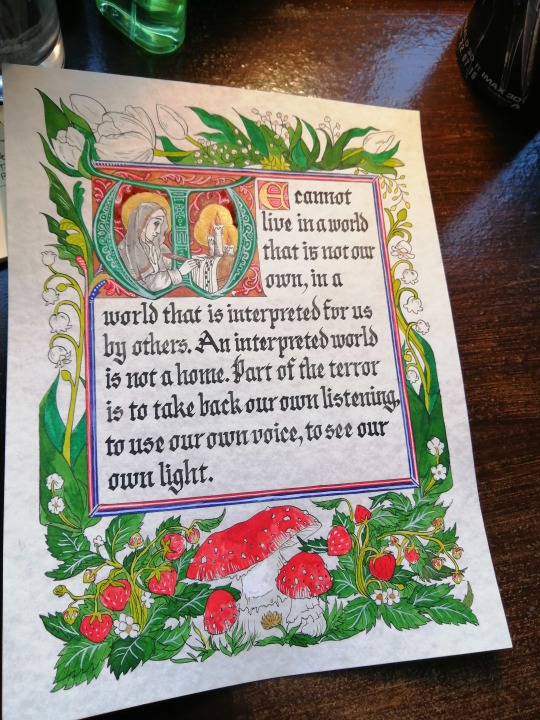 We cannot
live in a world
that is not our
own, in a
world that is interpreted for us
by others. An interpreted world
is not a home. Part of the terror
is to take back our own listening,
to use our own voice, to see our
own light.
IMAX 3D